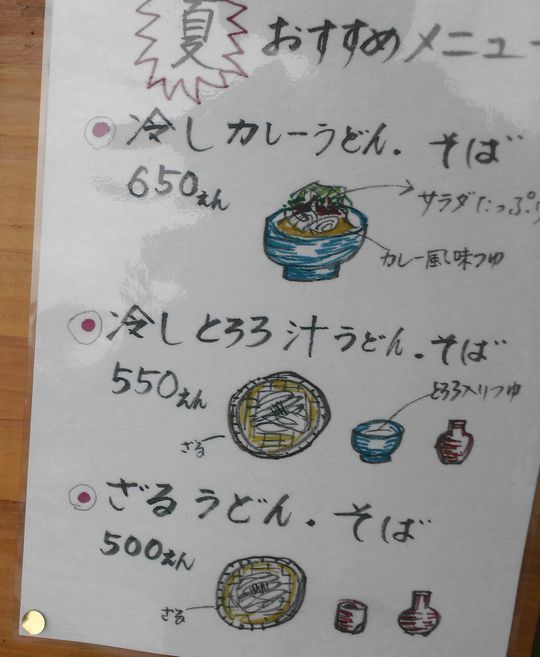 夏 おすすめメニュー
冷しカレーうどん.そば
650えん
サラダたっぷり
カレー風味つゆ
冷しとろろ汁うどん.そば
550えん
とろろ入りつゆ
ざる
ざるうどん.そば
500えん
ざる